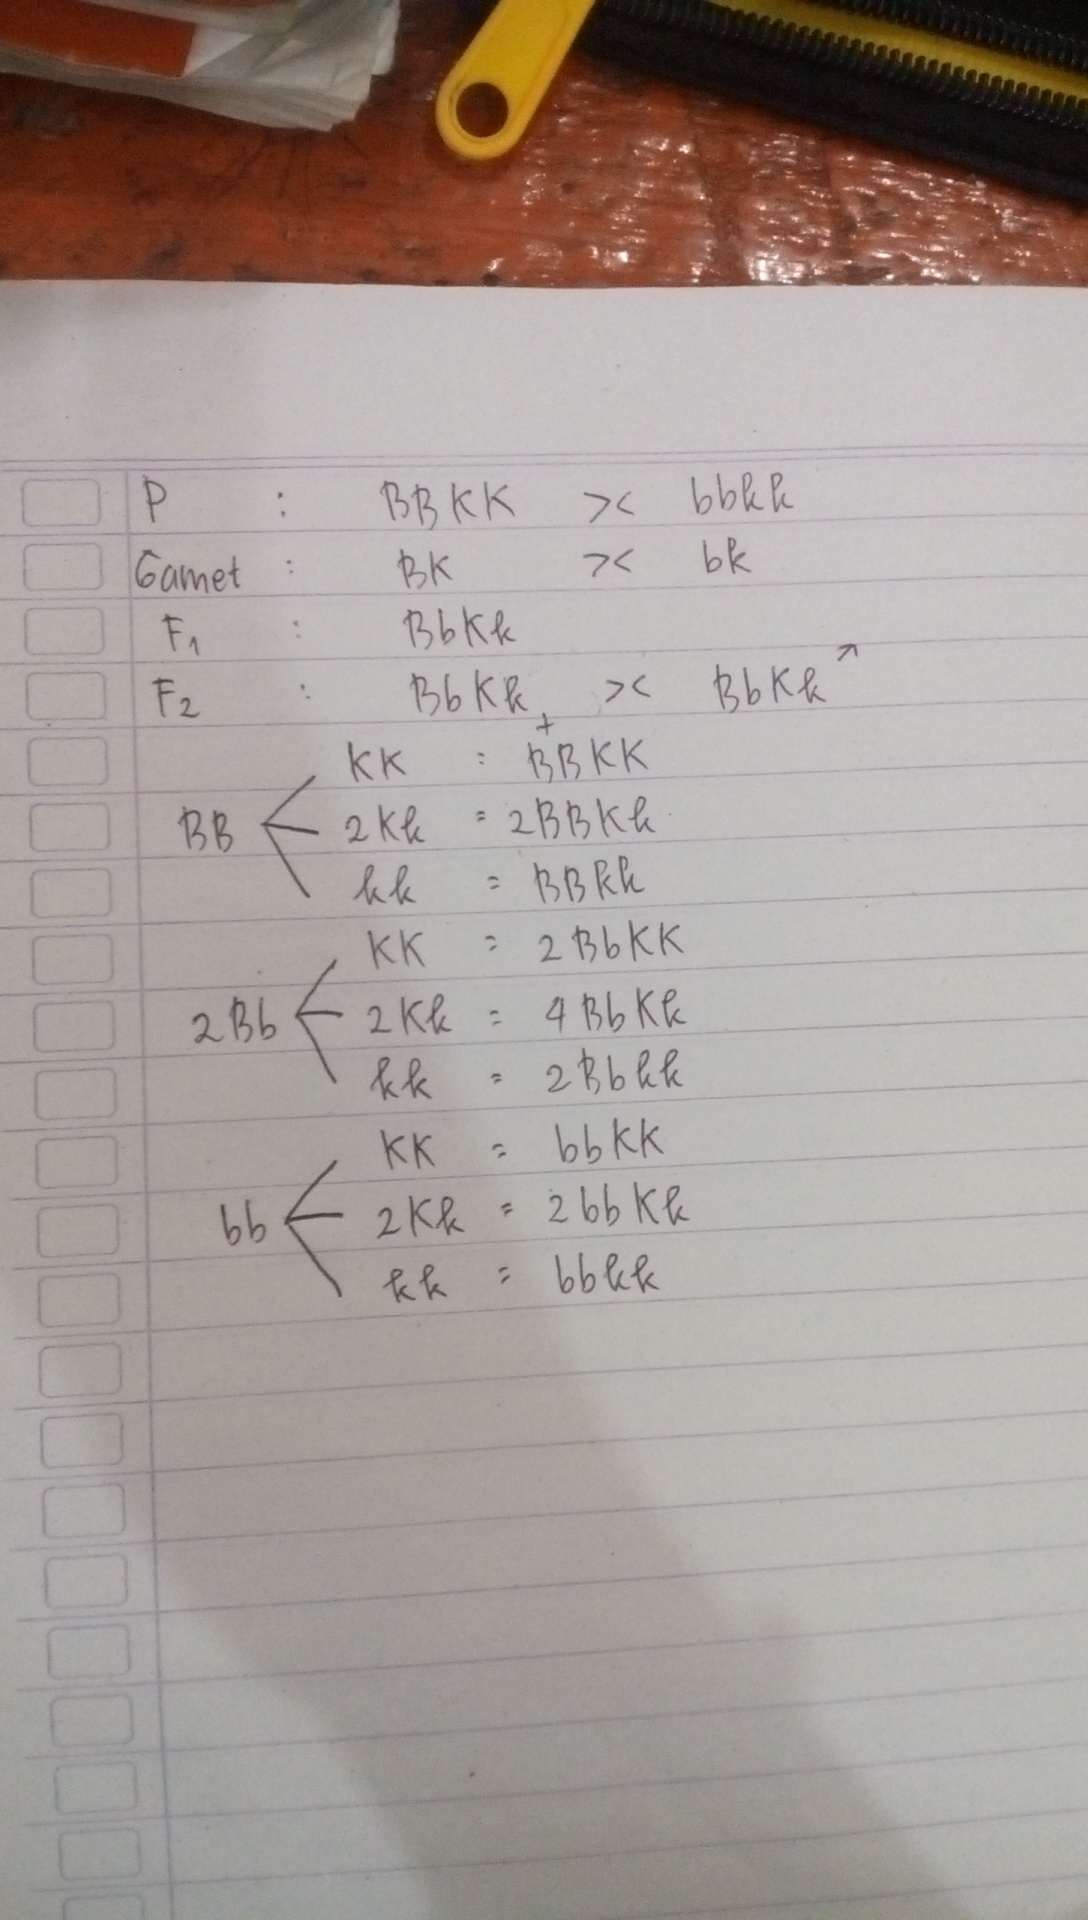 P : BBKK >< bbkk
Gamet : BK >< bk
F1 : BbKk
F2 : BbKk >< BbKk
KK = BBKK
BB 2Kk = 2BBKk
kk = BBkk
KK = 2BbKK
2Bb 2Kk = 4BbKk
kk = 2Bbkk
KK = bbKK
bb 2Kk = 2bbKk
kk = bbkk